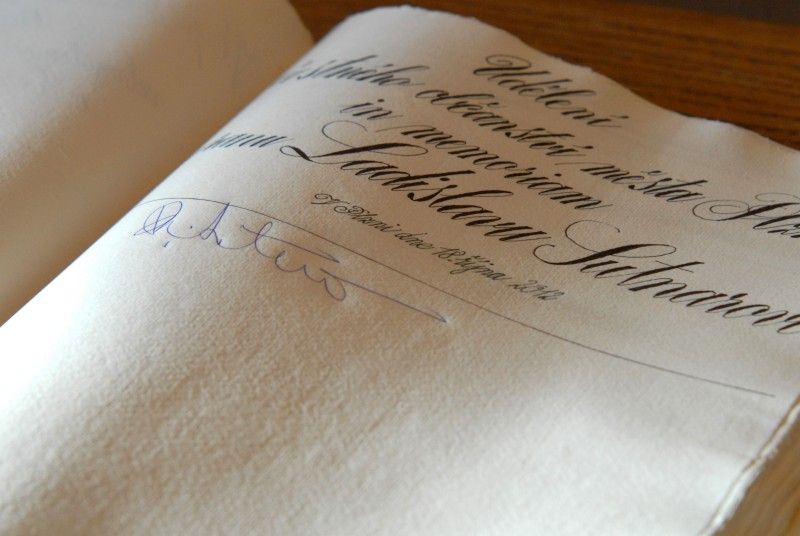 Udělení
čestného občanství města Plz
in memoriam
panu Ladislavu Sutnarovi
V Plzni dne 18. října 2012